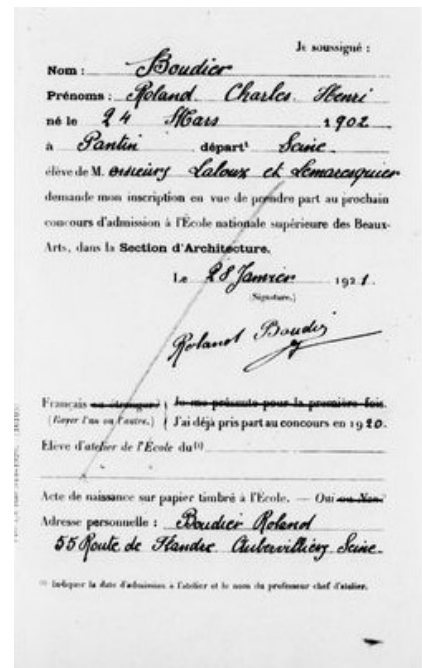 Je soussigné :
Nom : Boudier
Prénoms : Roland Charles Henri
né le 24 Mars 1902
à Pantin départt Seine
élève de M. essieurs Laloux et Lemaresquier
demande mon inscription en vue de prendre part au prochain
concours d'admission à l'École nationale supérieure des Beaux-
Arts, dans la Section d'Architecture.
Le 28 Janvier 1921.
(Signature.)
Roland Boudier
Français ou étranger? Je me présente pour la première fois.
(Rayer l'un ou l'autre.) J'ai déjà pris part au concours en 1920.
Elève d'atelier de l'École du (1)
Acte de naissance sur papier timbré à l'École. — Oui ou Non?
Adresse personnelle : Boudier Roland
55 Route de Flandre Aubervilliers Seine
(1) Indiquer la date d'admission à l'atelier et le nom du professeur chef d'atelier.